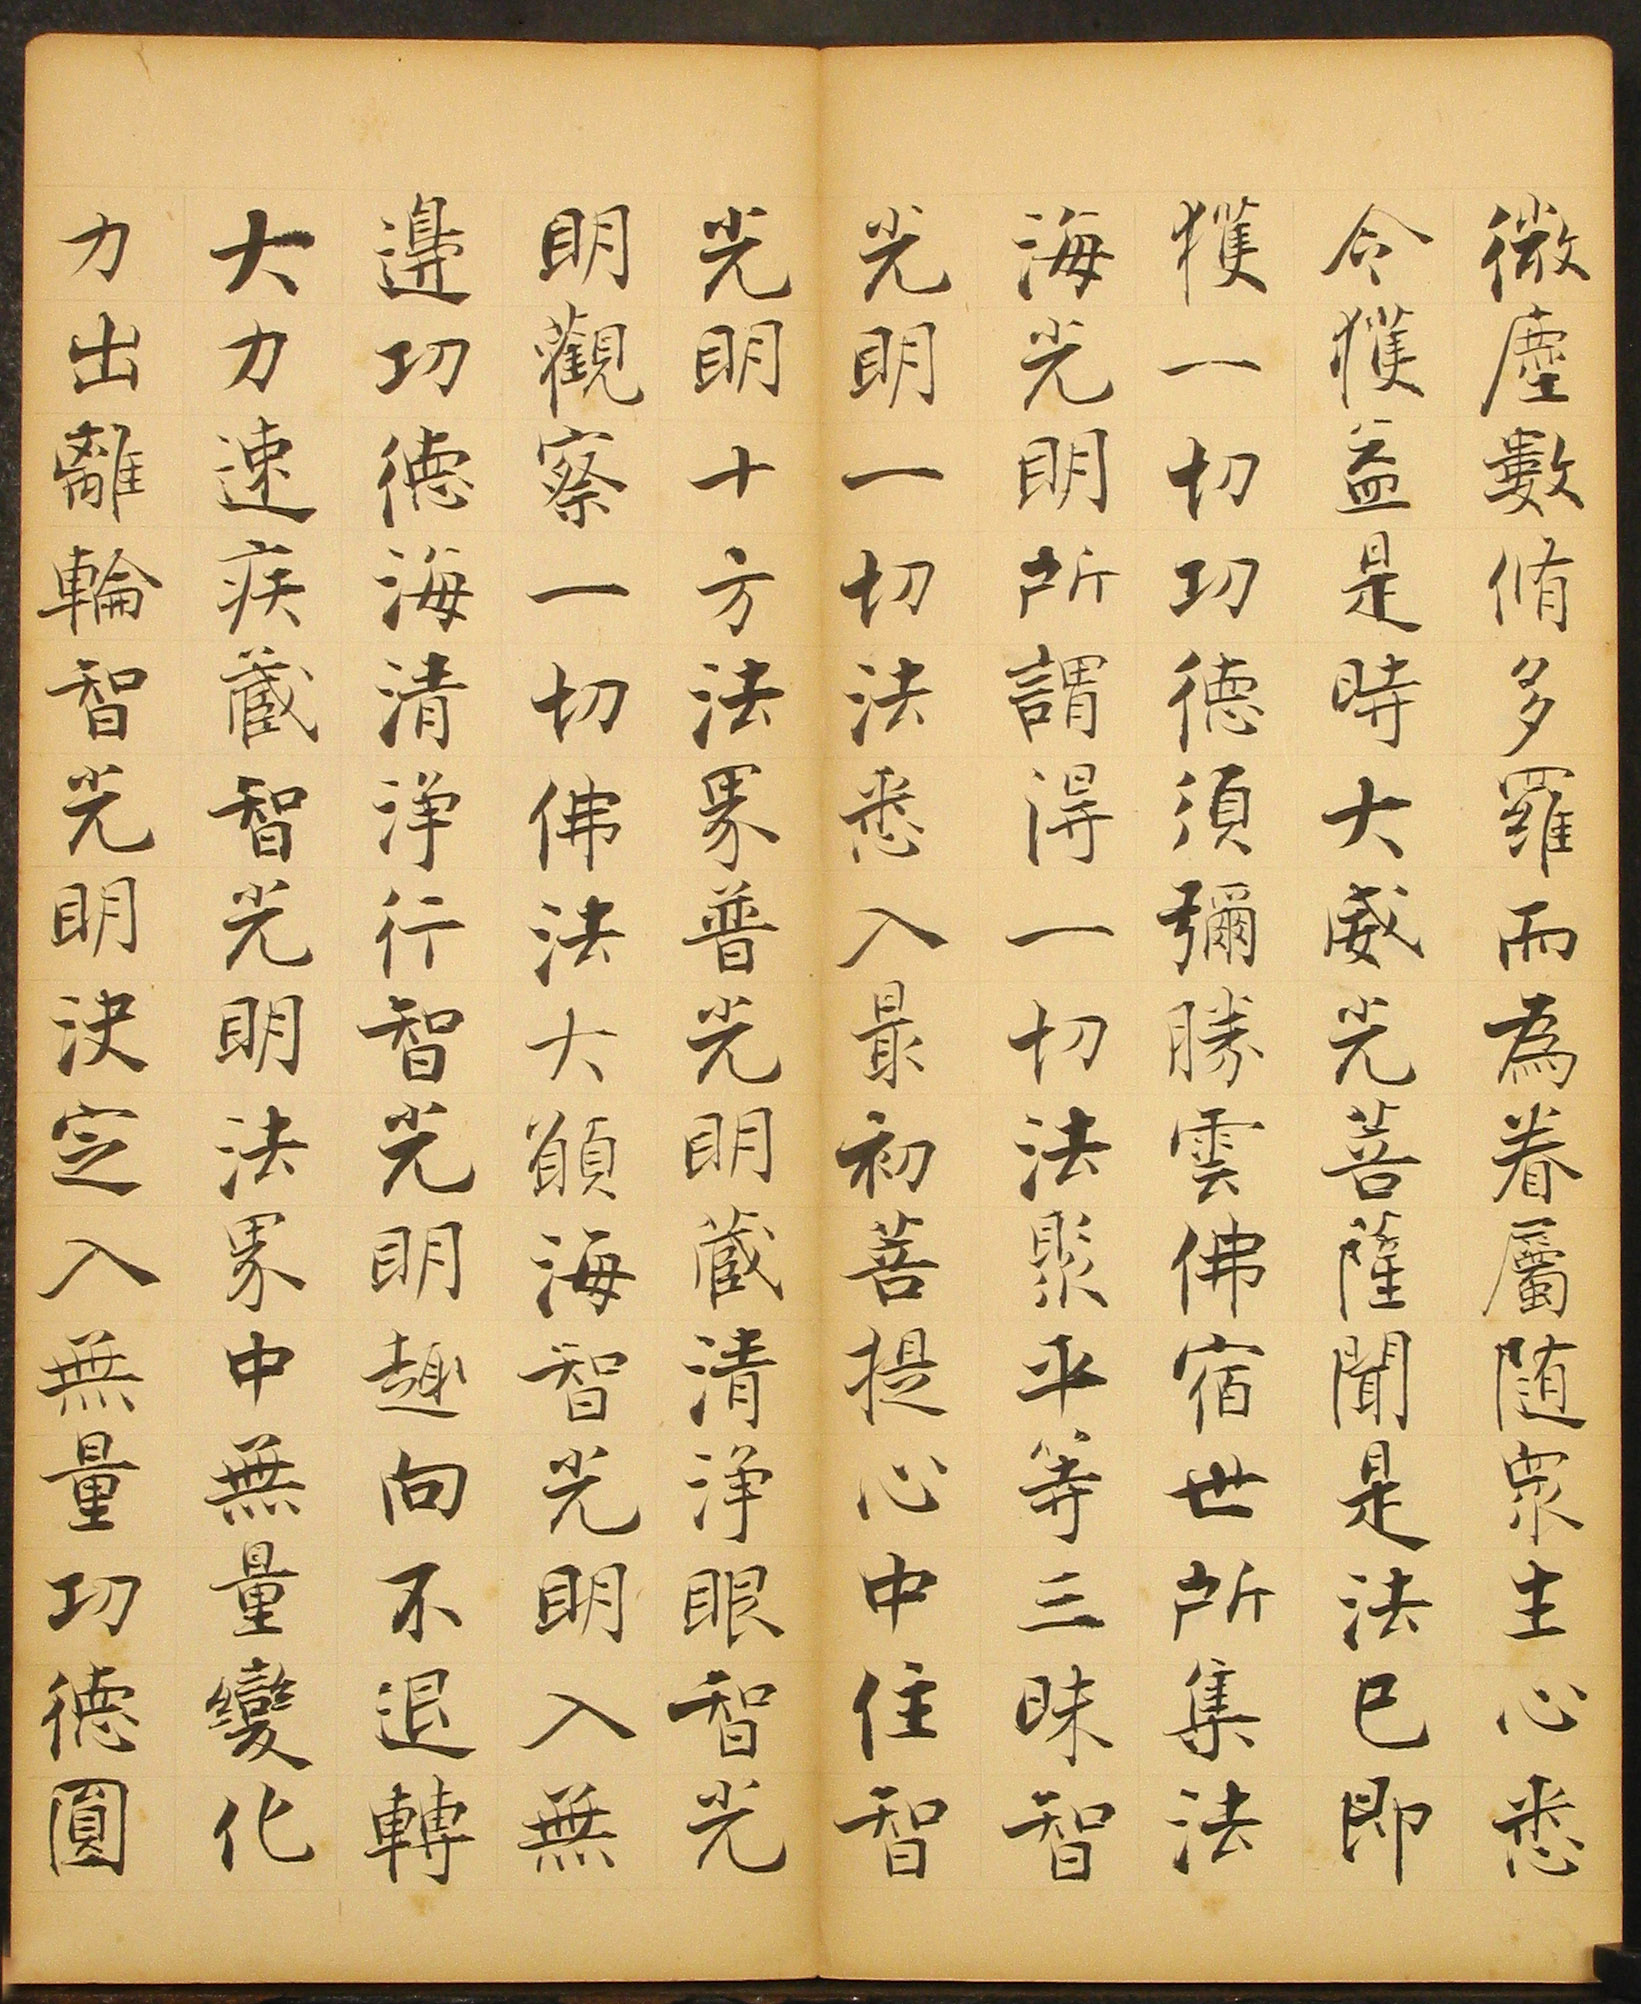 微塵數脩多羅而為眷屬随眾生心悉
令獲益是時大威光菩薩聞是法已即
獲一切功德須彌勝雲佛宿世所集法
海光明所謂得一切法聚平等三昧智
光明一切法悉入最初菩提心中住智
光明十方法界普光明藏清淨眼智光
明觀察一切佛法大願海智光明入無
邊功德海清淨行智光明趣向不退轉
大力速疾藏智光明法界中無量變化
力出離輪智光明決定入無量功德圓